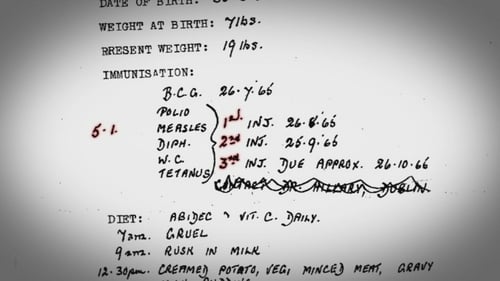 DATE OF BIRTH:
WEIGHT AT BIRTH: 7lbs.
RRESENT WEIGHT: 19 lbs.
IMMUNISATION:
B.C.G. 26.7.65
POLIO
5.1. MEASLES 1st. INJ. 26.8.65
DIPH. 2nd INJ. 25.9.65
W.C. 3rd INJ. DUE APPROX. 26.10.66
TETANUS
CONTACT DR. HILLARY, DUBLIN.
DIET: ABIDEC VIT. C. DAILY.
7am. GRUEL
9am. RUSK IN MILK
12.30pm. CREAMED POTATO, VEG, MINCED MEAT, GRAVY